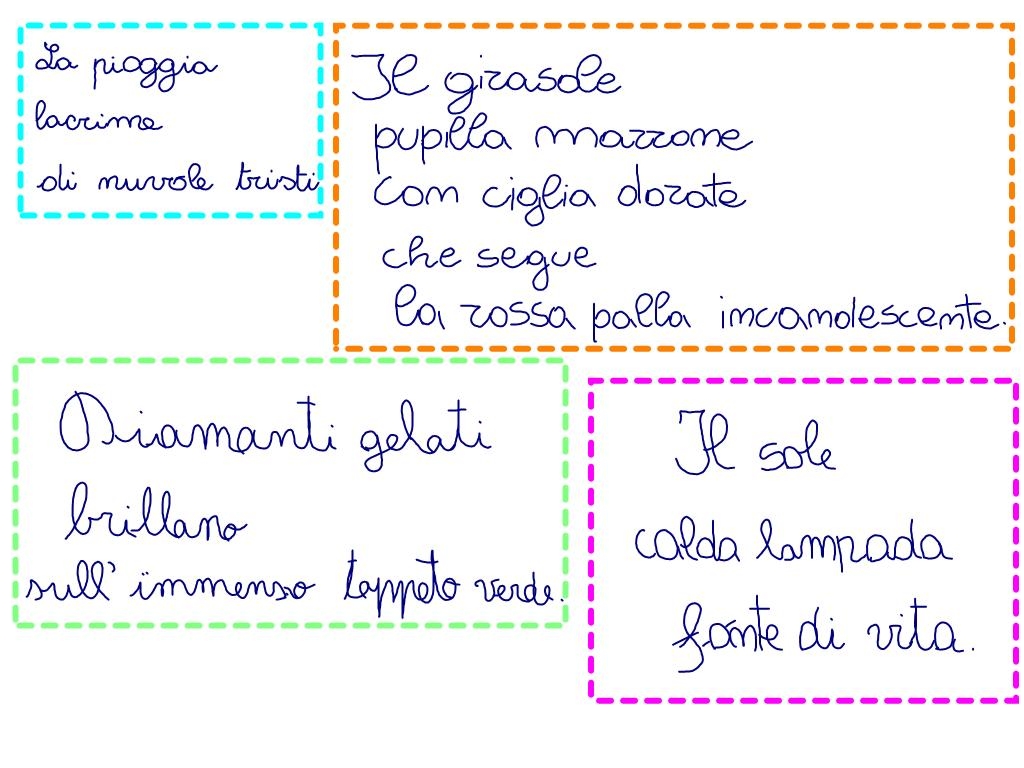 La pioggia
lacrime
di nuvole tristi
Il girasole
pupilla marrone
con ciglia dorate
che segue
la rossa palla incandescente.
Diamanti gelati
brillano
sull'immenso tappeto verde.
Il sole
calda lampada
fonte di vita.